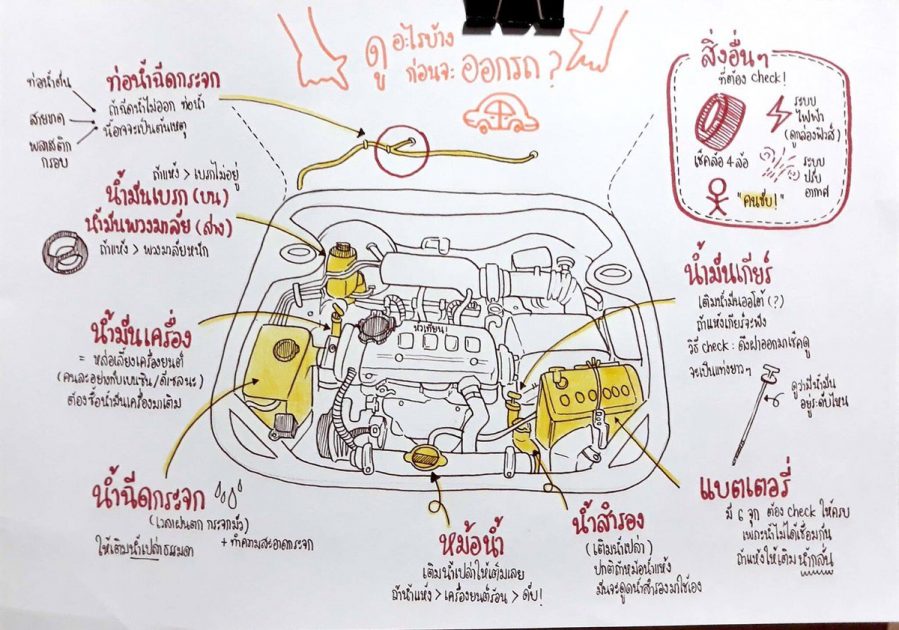 ดูอะไรบ้าง
ก่อนจะ ออกรถ?
ท่อน้ำฉีดกระจก
ถ้าฉีดน้ำไม่ออก ท่อน้ำ
นี้อาจจะเป็นต้นเหตุ
ท่อน้ำตัน
สายขาด
พลาสติก
กรอบ
ถ้าแห้ง > เบรกไม่อยู่
น้ำมันเบรก (บน)
น้ำมันพวงมาลัย (ล่าง)
ถ้าแห้ง > พวงมาลัยหนัก
น้ำมันเครื่อง
= หล่อเลี้ยงเครื่องยนต์
(คนละอย่างกับเบนซิน/ดีเซลนะ)
ต้องซื้อน้ำมันเครื่องมาเติม
น้ำฉีดกระจก
(เวลาฝนตก กระจกมัว)
+ ทำความสะอาดกระจก
ให้เติมน้ำเปล่าธรรมดา
หัวเทียน!
หม้อน้ำ
เติมน้ำเปล่าให้เต็มเลย
ถ้าน้ำแห้ง > เครื่องยนต์ร้อน > ดับ!
น้ำสำรอง
(เติมน้ำเปล่า)
ปกติถ้าหม้อน้ำแห้ง
มันจะดูดน้ำสำรองมาใช้เอง
สิ่งอื่นๆ
ที่ต้อง check!
เช็คล้อ 4 ล้อ
ระบบ
ไฟฟ้า
(ดูกล่องฟิวส์)
ระบบ
ปรับ
อากาศ
"คนขับ!"
น้ำมันเกียร์
เติมน้ำมันออโต้ (?)
ถ้าแห้งเกียร์จะพัง
วิธี check : ดึงฝาออกมาเช็คดู
จะเป็นแท่งยาวๆ
ดูว่ามีน้ำมัน
อยู่ระดับไหน
แบตเตอรี่
มี 6 จุก ต้อง check ให้ครบ
เพราะน้ำไม่ได้เชื่อมกัน
ถ้าแห้งให้เติมน้ำกลั่น